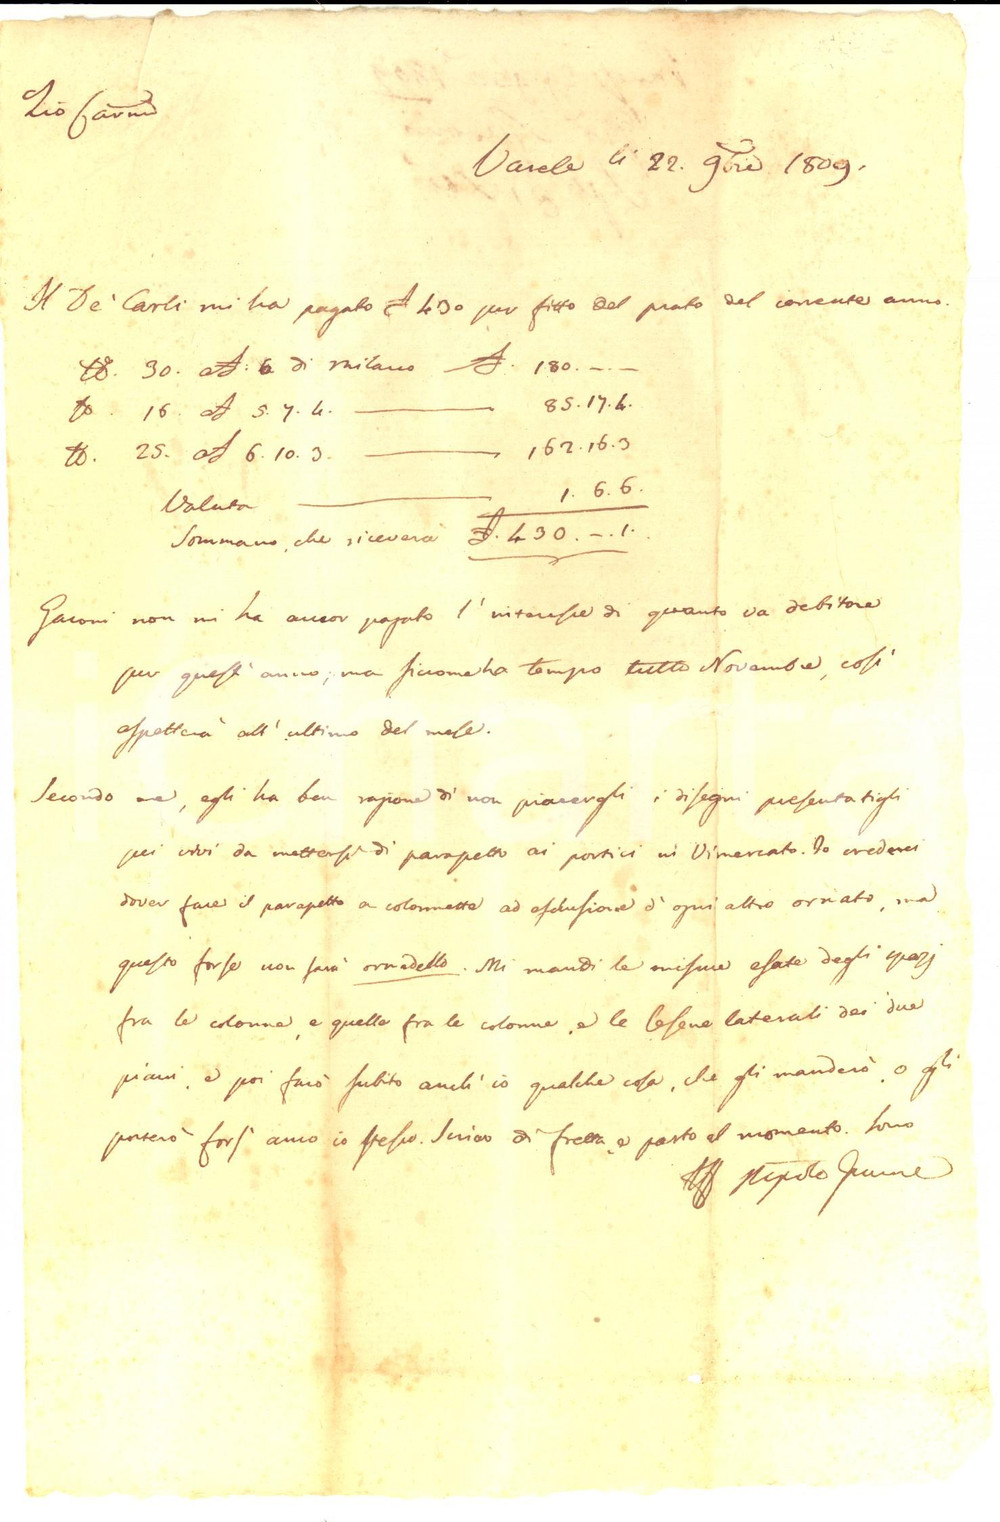 Zio Car.mo
Varese li 22. 9bre 1809.
Il De' Carli mi ha pagato £ 430 per fitto del prato del corrente anno.
30. a £: 6 di Milano £. 180. - . -
16. a £ 5. 7. 4. 85. 17. 4.
25. a £ 6. 10. 3. 162. 16. 3
Valuta 1. 6. 6.
Sommano, che riceverà £. 430. - . 1.
Giaconi non mi ha ancor pagato l' interesse di quanto va debitore
per quest' anno; ma siccome ha tempo tutto Novembre, così
aspetterà all' ultimo del mese.
Secondo me, egli ha ben ragione di non piacergli i disegni presentatigli
pei vivi da mettersi di parapetto ai portici in Vimercato. Io crederei
dover fare il parapetto a colonnette ad esclusione d' ogni altro ornato, ma
questo forse non sarà ornadello. Mi mandi le misure esate degli spazj
fra le colonne, e quelle fra le colonne, e le lesene laterali dei due
piani, e poi farò subito anch' io qualche cosa, che gli manderò, o gli
porterò fors' anco io stesso. Scrivo di fretta, e parto al momento. Sono
nipote